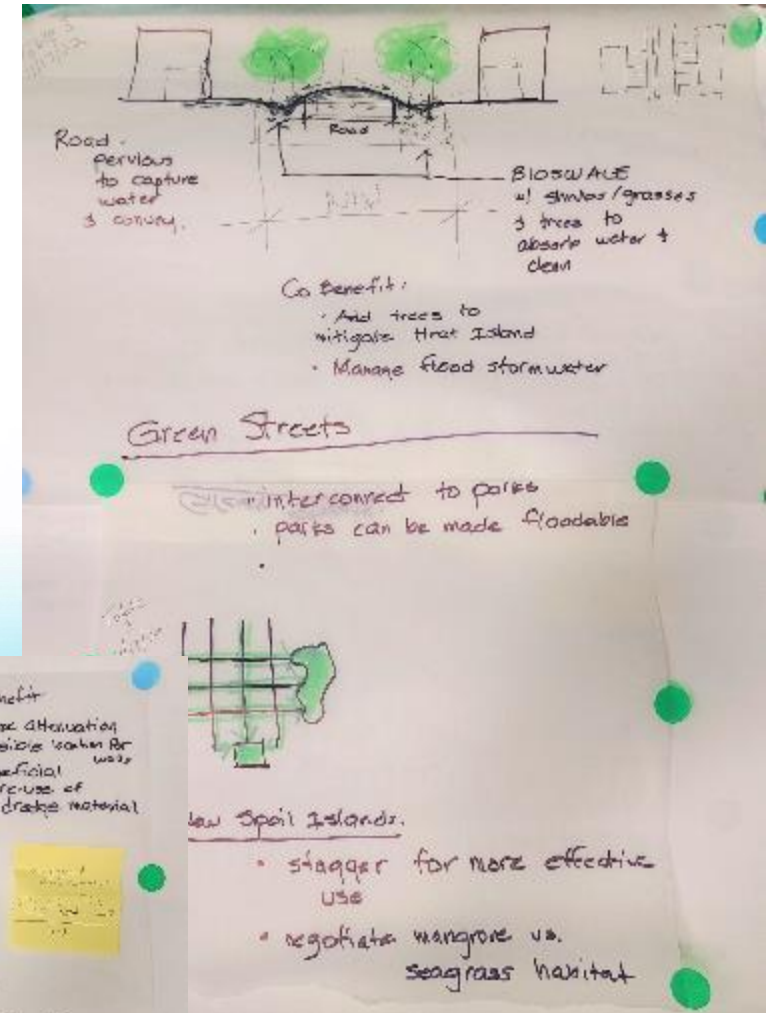 Road
Road -
pervious
to capture
water
& convey.
BIOSWALE
w/ shrubs/grasses
& trees to
absorb water &
clean
Co Benefit:
• Add trees to
mitigate Heat Island
• Manage flood stormwater
Green Streets
• interconnect to parks
• parks can be made floodable
•
Attenuation
re-use of
dredge material
Spoil Islands.
• stagger for more effective
use
• negotiate mangrove vs.
seagrass habitat